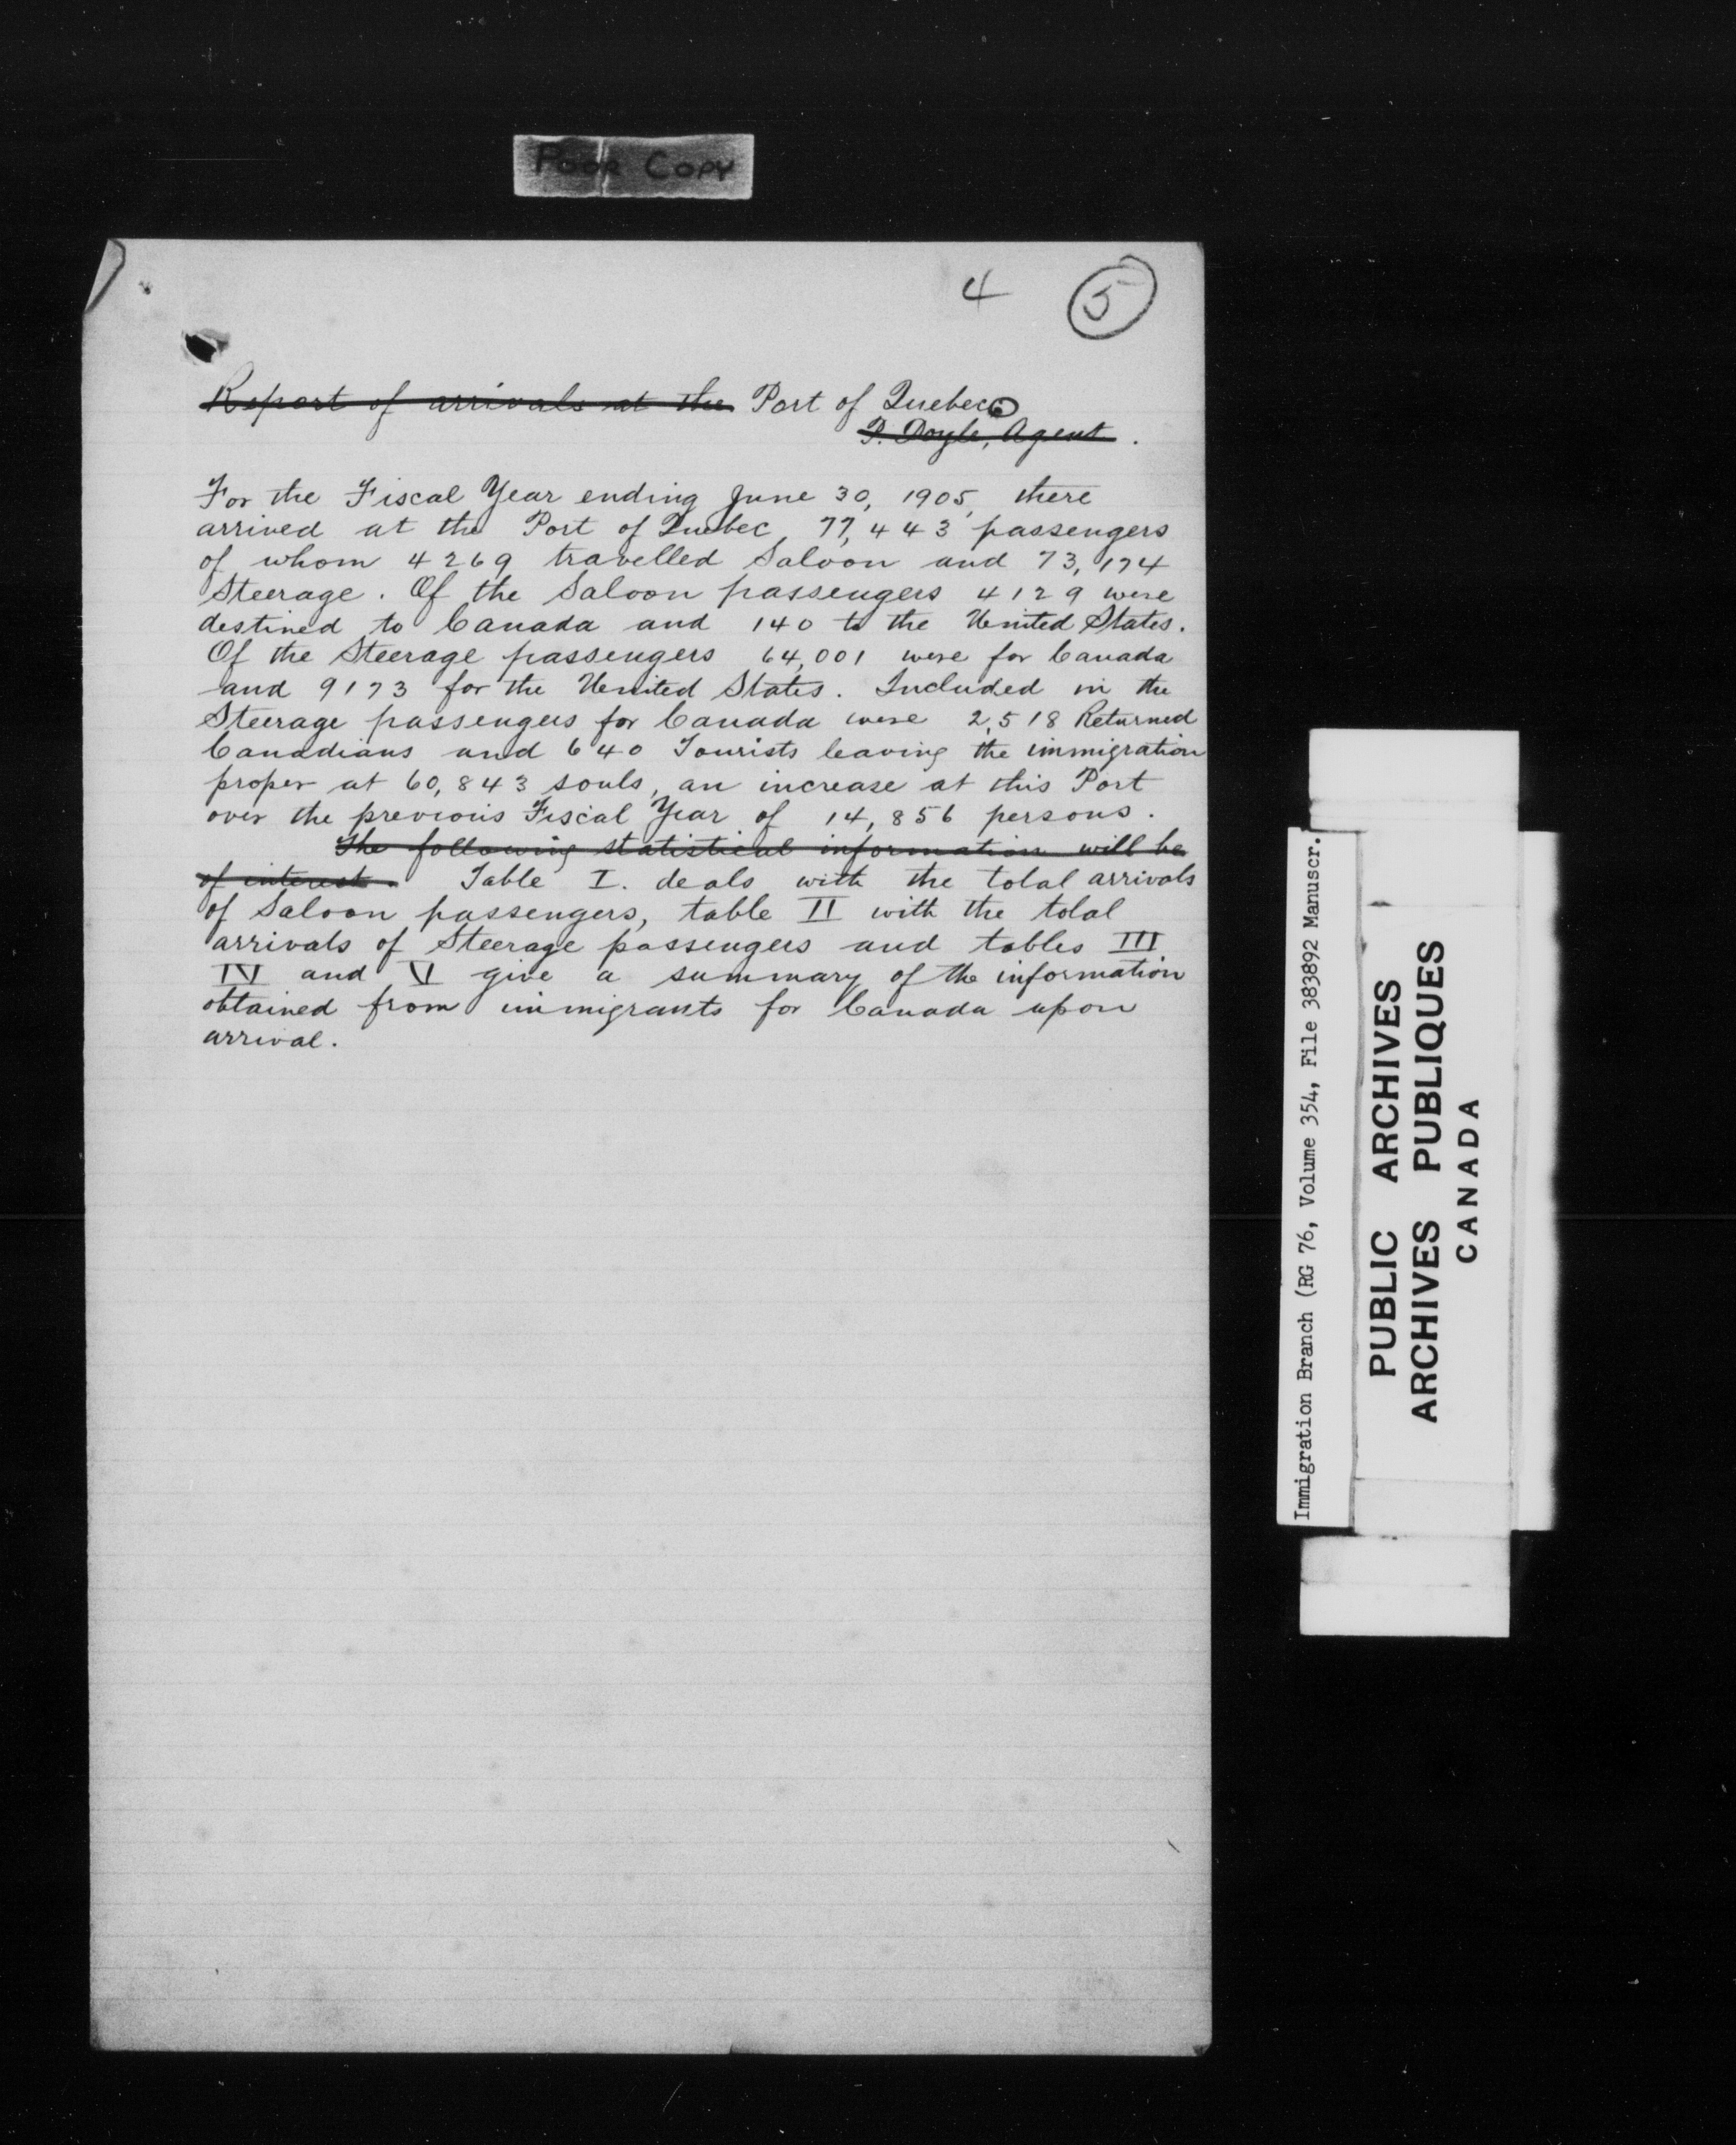 POOR COPY
4 5
Report of arrivals at the Port of Quebec
P. Doyle, Agent.
For the Fiscal Year ending June 30, 1905, there
arrived at the Port of Quebec 77,443 passengers
of whom 4269 travelled Saloon and 73,174
Steerage. Of the Saloon passengers 4129 were
destined to Canada and 140 to the United States.
Of the Steerage passengers 64,001 were for Canada
and 9173 for the United States. Included in the
Steerage passengers for Canada were 2,518 Returned
Canadians and 640 Tourists leaving the immigration
proper at 60,843 souls, an increase at this Port
over the previous Fiscal Year of 14,856 persons.
The following statistical information will be
of interest. Table I. deals with the total arrivals
of Saloon passengers, table II with the total
arrivals of Steerage passengers and tables III
IV and V give a summary of the information
obtained from immigrants for Canada upon
arrival.
Immigration Branch (RG 76, Volume 354, File 383892 Manuscr.
PUBLIC ARCHIVES
ARCHIVES PUBLIQUES
CANADA